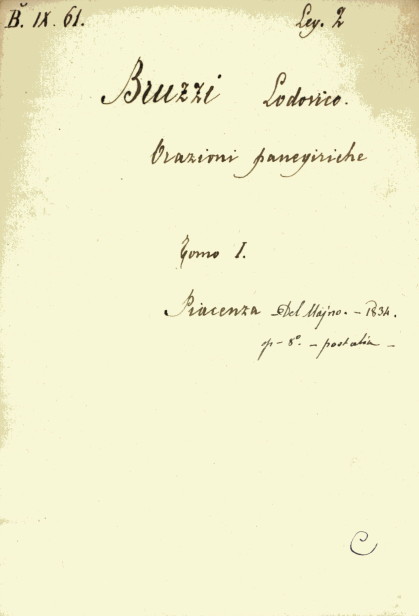 B. IX. 61. Leg. 2
Bruzzi Lodovico.
Orazioni panegiriche
Tomo I.
Piacenza Del Majno. - 1834.
- 8° -
C